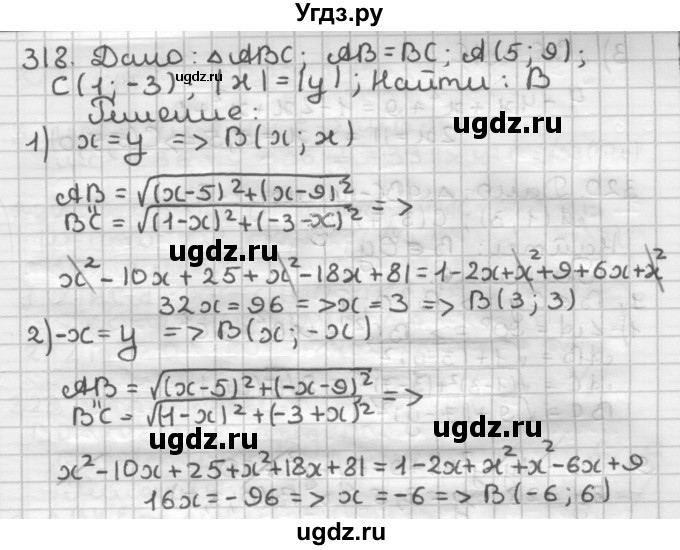 Угдз.ру
318. Дано: △ABC; AB=BC; A(5; 9);
C(1; -3); |x|=|y|; Найти: B
Решение:
1) x=y => B(x; x)
AB = √(x-5)²+(x-9)²
BC = √(1-x)²+(-3-x)² =>
x² - 10x + 25 + x² - 18x + 81 = 1 - 2x + x² + 9 + 6x + x²
32x = 96 => x = 3 => B(3; 3)
2) -x = y => B(x; -x)
AB = √(x-5)²+(-x-9)² =>
BC = √(1-x)²+(-3+x)²
x² - 10x + 25 + x² + 18x + 81 = 1 - 2x + x² + x² - 6x + 9
16x = -96 => x = -6 => B(-6; 6)
udgz.ru